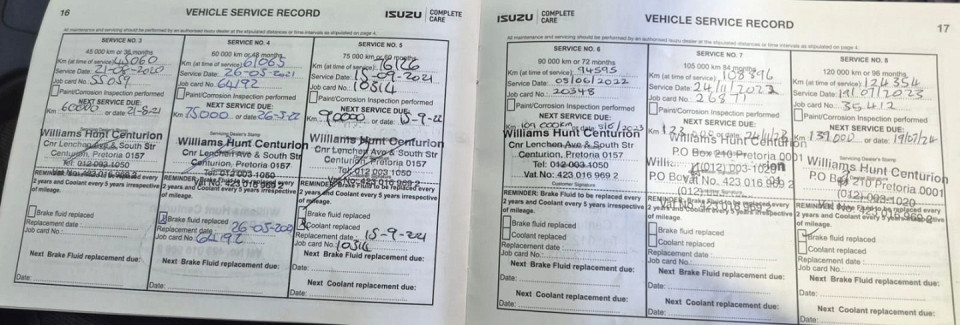 16
VEHICLE SERVICE RECORD
ISUZU COMPLETE CARE
All maintenance and servicing should be performed by an authorised Isuzu dealer at the stipulated distances or time intervals as stipulated on page 4.
SERVICE NO. 3
45 000 km or 36 months
Km (at time of service): 45060
Service Date: 21-08-2020
Job card No.:
Paint/Corrosion Inspection performed
NEXT SERVICE DUE:
Km 60000 or date: 21-8-21
Williams Hunt Centurion
Cnr Lenchen Ave & South Str
Centurion, Pretoria 0157
Tel: 012 003 1050
Vat No: 423 016 969 2
REMINDER: Brake Fluid to be replaced every
2 years and Coolant every 5 years irrespective
of mileage.
Brake fluid replaced
Replacement date:
Job card No.:
Next Brake Fluid replacement due:
Date:
SERVICE NO. 4
60 000 km or 48 months
Km (at time of service): 61065
Service Date: 26-05-2021
Job card No.: 64192
Paint/Corrosion Inspection performed
NEXT SERVICE DUE:
Km 75000 or date: 26-5-22
Servicing Dealer's Stamp
Williams Hunt Centurion
Cnr Lenchen Ave & South Str
Centurion, Pretoria 0157
Tel: 012 003 1050
Vat No: 423 016 969 2
REMINDER: Brake Fluid to be replaced every
2 years and Coolant every 5 years irrespective
of mileage.
Brake fluid replaced
Replacement date: 26-05-2021
Job card No.: 64192
Next Brake Fluid replacement due:
Date:
SERVICE NO. 5
75 000 km or 60 months
Km (at time of service): 76126
Service Date: 15-09-2021
Job card No.: 10514
Paint/Corrosion Inspection performed
NEXT SERVICE DUE:
Km 90000 or date: 15-9-22
Williams Hunt Centurion
Cnr Lenchen Ave & South Str
Centurion, Pretoria 0157
Tel: 012 003 1050
Vat No: 423 016 969 2
REMINDER: Brake Fluid to be replaced every
2 years and Coolant every 5 years irrespective
of mileage.
Brake fluid replaced
Coolant replaced
Replacement date: 15-9-21
Job card No.: 10514
Next Brake Fluid replacement due:
Date:
Next Coolant replacement due:
Date:
ISUZU COMPLETE CARE
VEHICLE SERVICE RECORD
17
All maintenance and servicing should be performed by an authorised Isuzu dealer at the stipulated distances or time intervals as stipulated on page 4.
SERVICE NO. 6
90 000 km or 72 months
Km (at time of service): 94595
Service Date: 05/06/2022
Job card No.: 20348
Paint/Corrosion Inspection performed
NEXT SERVICE DUE:
Km 109 000Km or date: 5/6/2023
Williams Hunt Centurion
Cnr Lenchen Ave & South Str
Centurion, Pretoria 0157
Tel: 012 003 1050
Vat No: 423 016 969 2
Customer Signature
REMINDER: Brake Fluid to be replaced every
2 years and Coolant every 5 years irrespective
of mileage.
Brake fluid replaced
Coolant replaced
Replacement date:
Job card No.:
Next Brake Fluid replacement due:
Date:
Next Coolant replacement due:
Date:
SERVICE NO. 7
105 000 km or 84 months
Km (at time of service): 108896
Service Date: 24/11/2022
Job card No.: 26871
Paint/Corrosion Inspection performed
NEXT SERVICE DUE:
Km 123 000 or date: 24/11/23
Williams Hunt Centurion
P.O Box 210 Pretoria 0001
(012) 003-1020
Vat No. 423 016 969 2
REMINDER: Brake Fluid to be replaced every
2 years and Coolant every 5 years irrespective
of mileage.
Brake fluid replaced
Coolant replaced
Replacement date:
Job card No.:
Next Brake Fluid replacement due:
Date:
Next Coolant replacement due:
Date:
SERVICE NO. 8
120 000 km or 96 months
Km (at time of service): 124354
Service Date: 19/07/2023
Job card No.: 35412
Paint/Corrosion Inspection performed
NEXT SERVICE DUE:
Km 139000 or date: 19/07/24
Servicing Dealer's Stamp
Williams Hunt Centurion
P.O Box 210 Pretoria 0001
(012) 003-1020
Vat No. 423 016 969 2
2 years and Coolant every 5 years irrespective
of mileage.
Brake fluid replaced
Coolant replaced
Replacement date:
Job card No.:
Next Brake Fluid replacement due:
Date:
Next Coolant replacement due:
Date: